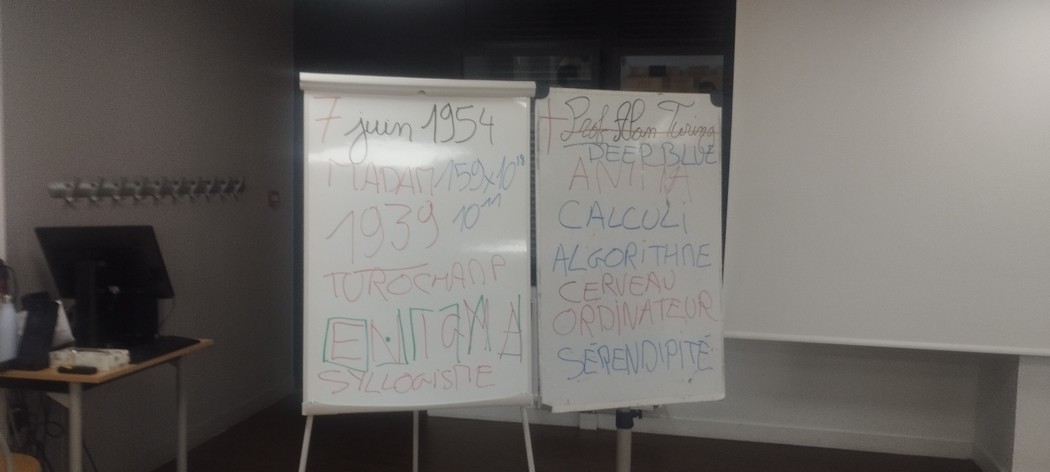 7 juin 1954
MADAM 159x10¹⁸
1939 10¹¹
TUROCHAMP
ENIGMA
SYLLOGISME
† Prof Alan Turing
DEEP BLUE
ANIMA
CALCULI
ALGORITHME
CERVEAU
ORDINATEUR
SÉRENDIPITÉ